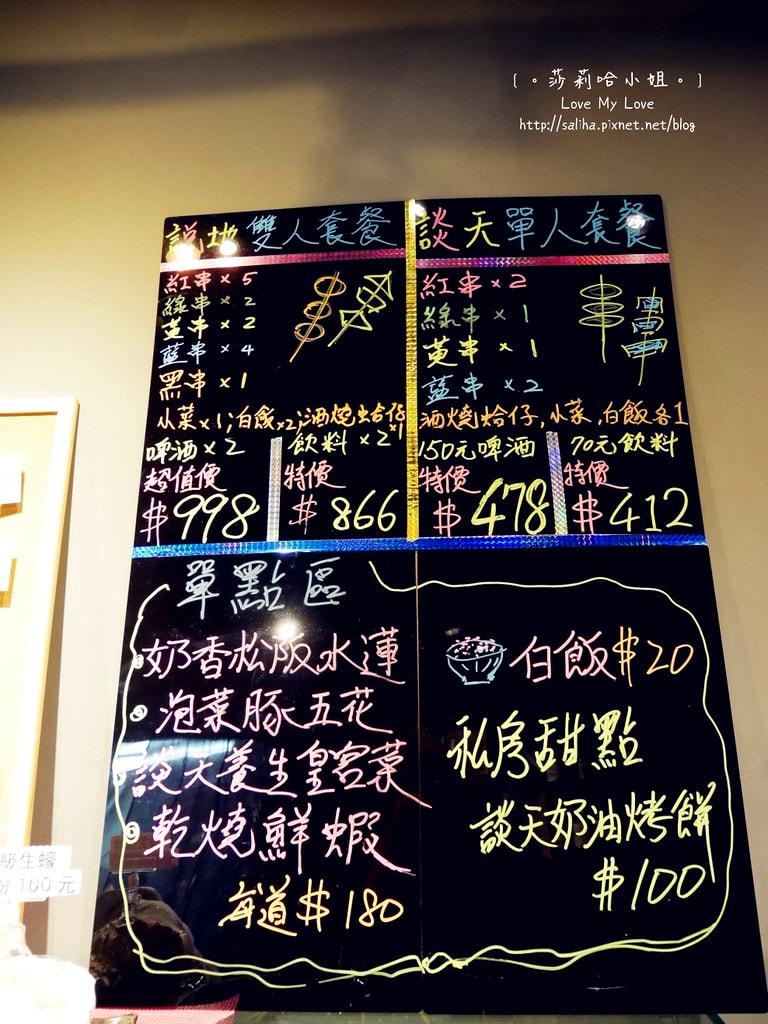 {。莎莉哈小姐。}
Love My Love
http://saliha.pixnet.net/blog
說地雙人套餐
紅串×5
綠串×2
黃串×2
藍串×4
黑串×1
小菜×1;白飯×2;酒燒蛤仔×1
啤酒×2
超值價
$998
飲料×2
特價
$866
談天單人套餐
紅串×2
綠串×1
黃串×1
藍串×2
酒燒蛤仔,小菜,白飯各1
150元啤酒
特價
$478
70元飲料
特價
$412
單點區
奶香松阪水蓮
泡菜豚五花
談天養生皇宮菜
乾燒鮮蝦
每道$180
白飯$20
私房甜點
談天奶油烤餅
$100
級生蠔
100元